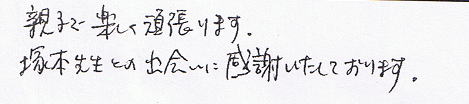 親子で楽しく頑張ります。
塚本先生との出会いに感謝いたしております。